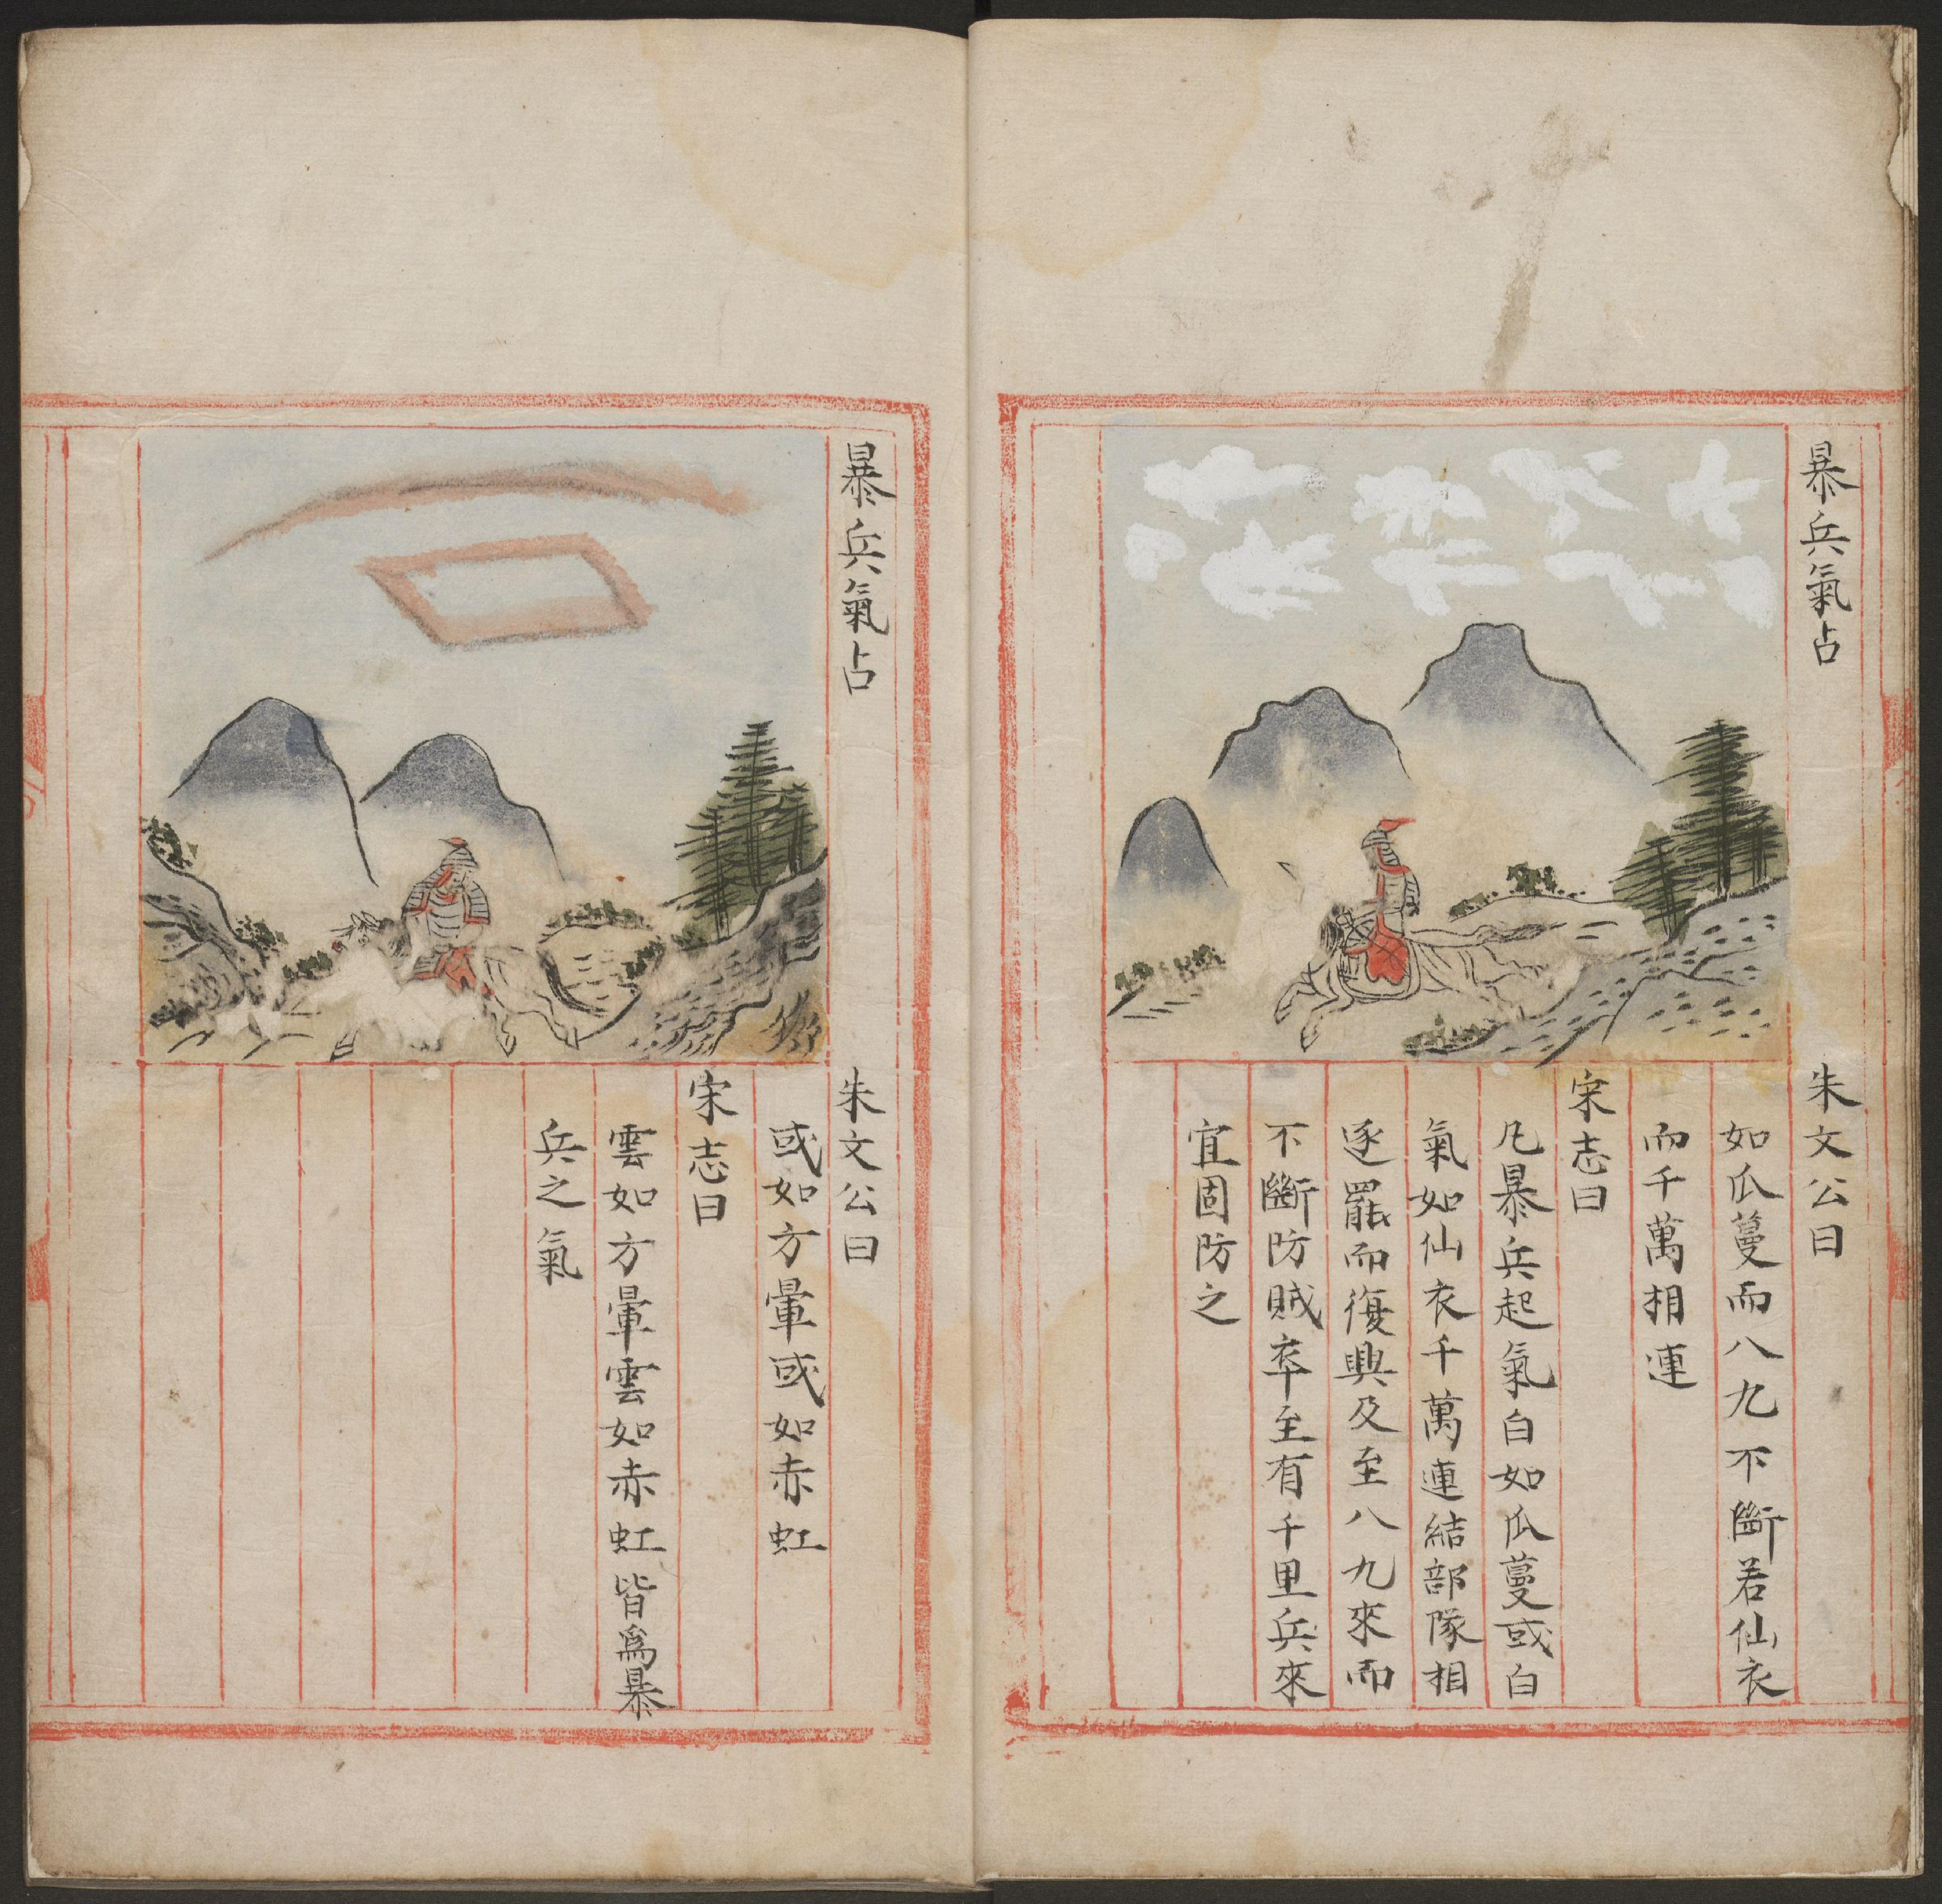 暴兵氣占
朱文公曰
如瓜蔓而八九不斷若仙衣
而千萬相連
宋志曰
凡暴兵起氣白如瓜蔓或白
氣如仙衣千萬連結部隊相
逐罷而復興及至八九來而
不斷防賊卒至有千里兵來
宜固防之
暴兵氣占
朱文公曰
或如方暈或如赤虹
宋志曰
雲如方暈雲如赤虹皆爲暴
兵之氣